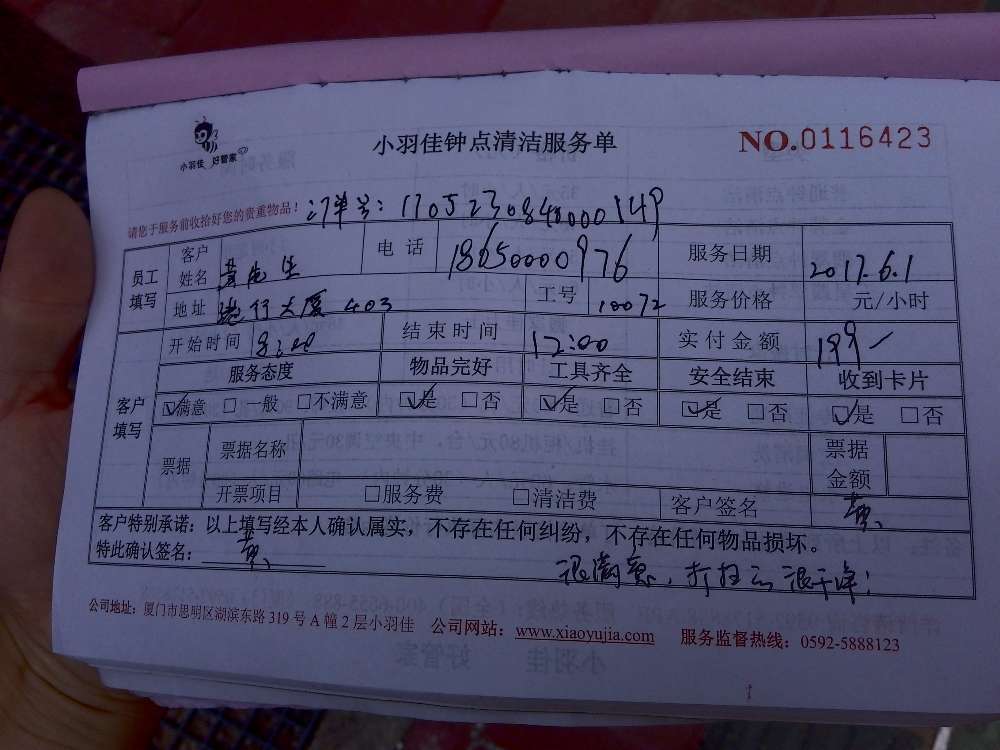 小羽佳 好管家
小羽佳钟点清洁服务单
NO.0116423
请您于服务前收拾好您的贵重物品！
订单号：1705230848000149
员工填写 客户姓名 黄先生 电话 18650000976 服务日期 2017.6.1
地址 港行大厦 403 工号 10072 服务价格 元/小时
客户填写 开始时间 8:00 结束时间 12:00 实付金额 199
服务态度 物品完好 工具齐全 安全结束 收到卡片
☑满意 □一般 □不满意 ☑是 □否 ☑是 □否 ☑是 □否 ☑是 □否
票据 票据名称 票据金额
开票项目 □服务费 □清洁费 客户签名 黄
客户特别承诺：以上填写经本人确认属实，不存在任何纠纷，不存在任何物品损坏。
特此确认签名： 黄
很满意，打扫很干净！
公司地址：厦门市思明区湖滨东路 319 号 A 幢 2 层小羽佳 公司网站：www.xiaoyujia.com 服务监督热线：0592-5888123